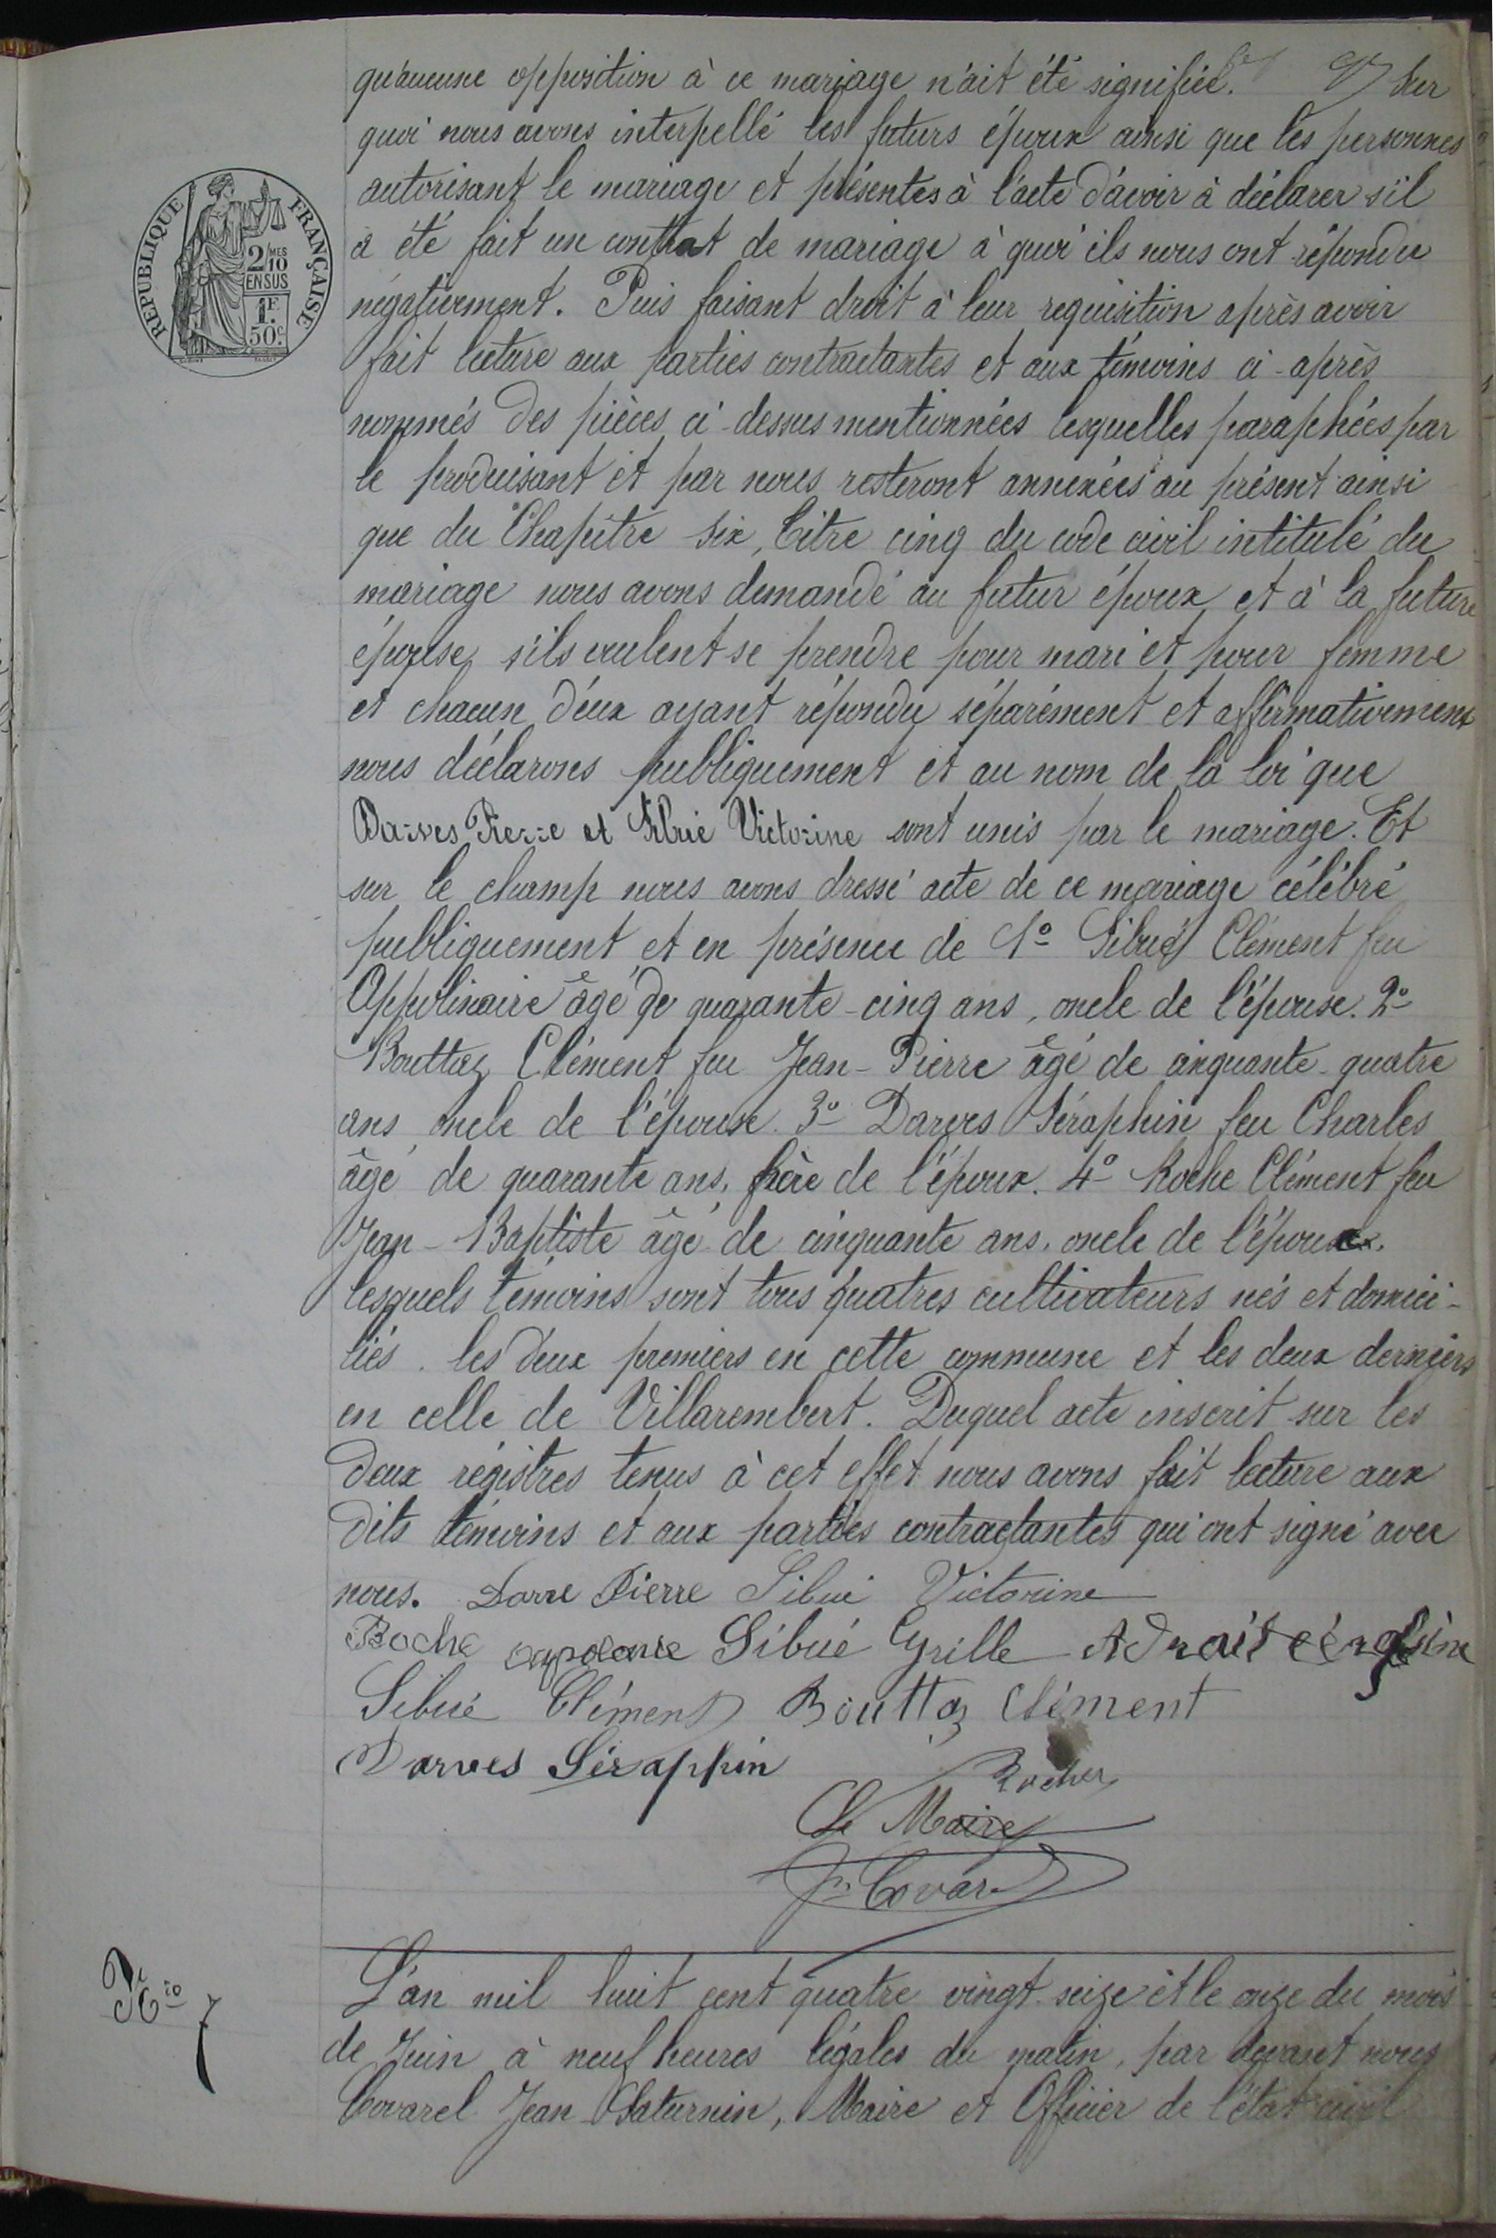 qu'aucune opposition à ce mariage n'ait été signifiée. Sur
quoi nous avons interpellé les futurs époux ainsi que les personnes
autorisant le mariage et présentes à l'acte d'avoir à déclarer s'il
a été fait un contrat de mariage à quoi ils nous ont répondu
négativement. Puis faisant droit à leur requisition après avoir
fait lecture aux parties contractantes et aux témoins ci-après
nommés des pièces ci-dessus mentionnées lesquelles paraphées par
le produisant et par nous resteront annexées au présent ainsi
que du Chapitre six, Titre cinq du code civil intitulé du
mariage nous avons demandé au futur époux et à la future
épouse s'ils veulent se prendre pour mari et pour femme
et chacun d'eux ayant répondu séparément et affirmativement
nous déclarons publiquement et au nom de la loi que
Darves Pierre et Sibué Victorine sont unis par le mariage. Et
sur le champ nous avons dressé acte de ce mariage célébré
publiquement et en présence de 1º Sibué Clément feu
Appolinaire âgé de quarante-cinq ans, oncle de l'épouse. 2º
Bouttaz Clément feu Jean-Pierre âgé de cinquante-quatre
ans oncle de l'épouse. 3º Darves Séraphin feu Charles
âgé de quarante ans, frère de l'époux. 4º Roche Clément feu
Jean-Baptiste âgé de cinquante ans, oncle de l'époux.
lesquels témoins sont tous quatres cultivateurs nés et domici-
liés. les deux premiers en cette commune et les deux derniers
en celle de Villarembert. Duquel acte inscrit sur les
deux régistres tenus à cet effet nous avons fait lecture aux
dits témoins et aux parties contractantes qui ont signé avec
nous. Darve Pierre Sibué Victorine
Roche Sibué Cyrille
Sibué Clément Bouttaz Clément
Darves Séraphin Roche
Le Maire
Jn Covarel
RÉPUBLIQUE FRANÇAISE
2/10 MES
EN SUS
1F.
50c.
No 7
L'an mil huit cent quatre vingt seize et le onze du mois
de Juin à neuf heures légales du matin, par devant nous
Covarel Jean Saturnin, Maire et Officier de l'état civil